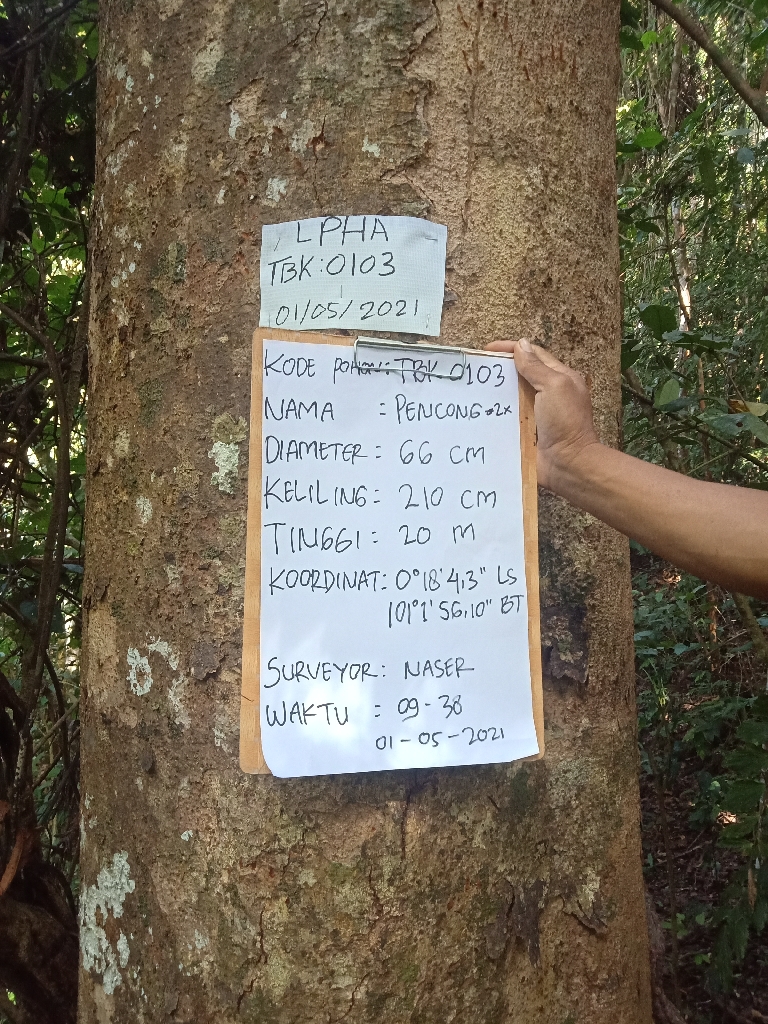 LPHA
TBK:0103
01/05/2021
KODE POHON: TBK 0103
NAMA = PENCONG
DIAMETER = 66 CM
KELILING = 210 CM
TINGGI = 20 M
KOORDINAT: 0°18'4,3" LS
101°1'56,10" BT
SURVEYOR: NASER
WAKTU = 09-38
01-05-2021